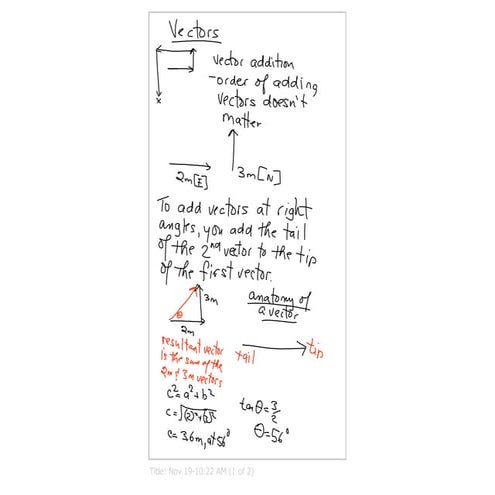 Vectors
vector addition
-order of adding
vectors doesn't
matter
x
2m[E]
3m[N]
To add vectors at right
angles, you add the tail
of the 2nd vector to the tip
of the first vector.
3m
θ
2m
anatomy of
a vector
tail
tip
resultant vector
is the sum of the
2m & 3m vectors
c² = a² + b²
c = √(2)² + (3)²
c = 3.6m, at 56°
tan θ = 3/2
θ = 56°
Title: Nov 19-10:22 AM (1 of 2)